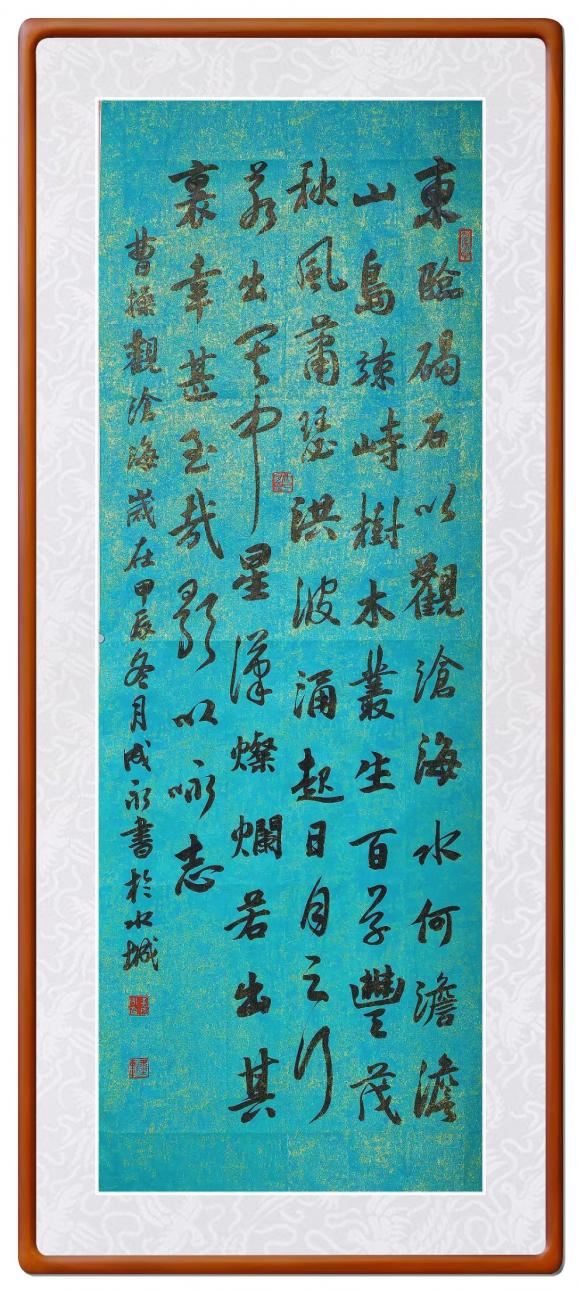 東臨碣石以觀滄海水何澹澹
山島竦峙樹木叢生百草豐茂
秋風蕭瑟洪波涌起日月之行
若出其中星漢燦爛若出其
裏幸甚至哉歌以咏志
曹操觀滄海歲在甲辰冬月成永書於水城